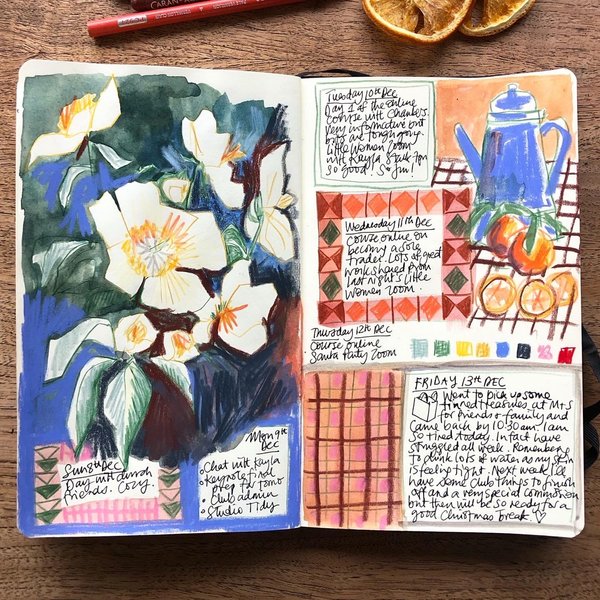 CARAN
Sun 8th Dec
Day with
friends. Cozy
Mon 9th
Dec
• Chat with Kayla
• Keynote final
prep for tomo
• Club admin
• Studio Tidy
Tuesday 10th Dec
Day 1 of the online
course with Chambers.
Very informative but
Little Women Zoom
with Kayla Stark 7pm
So good! So fun!
Wednesday 11th Dec
Course online on
becoming a sole
trader. Lots of great
work shared from
last night's Little
Women Zoom
Thursday 12th Dec
Course online
Santa Party Zoom
FRIDAY 13TH DEC
Went to pick up some
tinned treasures at M+S
for friends + family and
came back by 10:30am. I am
so tired today. In fact have
struggled all week. Remembering
to drink lots of water as my skin
is feeling tight. Next week I'll
have some Club things to finish
off and a very special commission
but then will be so ready for a
good Christmas break. ♡